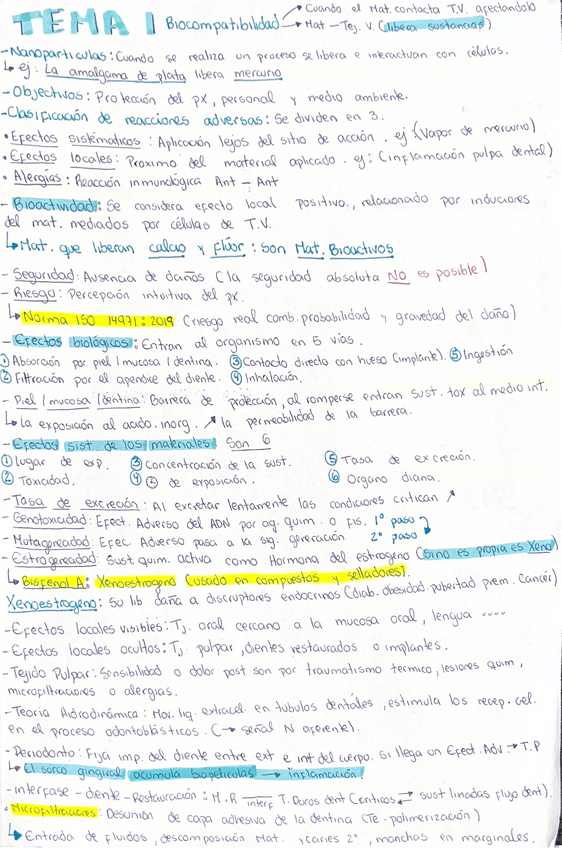 TEMA 1 Biocompatibilidad → Cuando el Mat. contacta T.V. afectandolo
→ Mat - Tej. V. (libera sustancias)
- Nanoparticulas: Cuando se realiza un proceso se libera e interactuan con células.
↳ ej: La amalgama de plata libera mercurio
- Objectivos: Protección del px, personal y medio ambiente.
- Clasificación de reacciones adversas: Se dividen en 3.
• Efectos sistemáticos: Aplicación lejos del sitio de acción. ej (Vapor de mercurio)
• Efectos locales: Proximo del material aplicado. ej: (inflamación pulpa dental)
• Alergias: Reacción inmunológica Ant - Ant
- Bioactividad: Se considera efecto local positivo, relacionado por induciones
del mat. mediados por células de T.V.
↳ Mat. que liberan calcio y Flúor: son Mat. Bioactivos
- Seguridad: Ausencia de daños (la seguridad absoluta NO es posible)
- Riesgo: Percepción intuitiva del px.
↳ Norma ISO 14971:2019 (riesgo real comb. probabilidad y gravedad del daño)
- Efectos biológicos: Entran al organismo en 5 vías.
① Absorción por piel/mucosa/dentina. ③ Contacto directo con hueso (implante). ⑤ Ingestión
② Filtración por el apendice del diente. ④ Inhalación.
- Piel/mucosa/dentina: Barrera de protección, al romperse entran sust. tox al medio int.
↳ La exposición al acido. inorg. ↗ la permeabilidad de la barrera.
- Efectos sist. de los materiales: Son 6
① Lugar de exp. ③ Concentración de la sust. ⑤ Tasa de excreción.
② Toxicidad. ④ de exposición. ⑥ Organo diana.
- Tasa de excreción: Al excretar lentamente las condiciones critican ↗
- Genotoxicidad: Efect. Adverso del ADN por ag. quim. o fis. 1º paso
- Mutageneadad: Efec. Adverso pasa a la sig. generación 2º paso
- Estrogeneadad: Sust. quim. activa como Hormona del estrogeno (Si no es propia es Xeno)
↳ Bisfenol A: Xenoestrogeno (usado en compuestos y selladores).
Xenoestrogeno: Su lib daña a discruptores endocrinos (diab. obesidad. pubertad prem. Cancer)
- Efectos locales visibles: Tj. oral cercano a la mucosa oral, lengua ....
- Efectos locales ocultos: Tj. pulpar, dientes restaurados o implantes.
- Tejido Pulpar: Sensibilidad o dolor post son por traumatismo termico, lesiones quim,
microfiltraciones o alergias.
- Teoria Hidrodinámica: Mov. liq. extracel. en tubulos dentales, estimula los recep. cel.
en el proceso odontoblásticos. (→ señal N aferente).
- Periodonto: Fija imp. del diente entre ext e int del cuerpo. Si llega un Efect. Adv → T.P
↳ El surco gingival acumula biopeliculas → inflamación.
- interfase - diente - Restauración: M.R interf T. Duros dent ⇄ sust linadas flujo dent).
• Microfiltraciones: Desunión de capa adhesiva de la dentina (Te. polimerización)
↳ Entrada de fluidos, descomposición Mat., caries 2º, manchas en marginales.